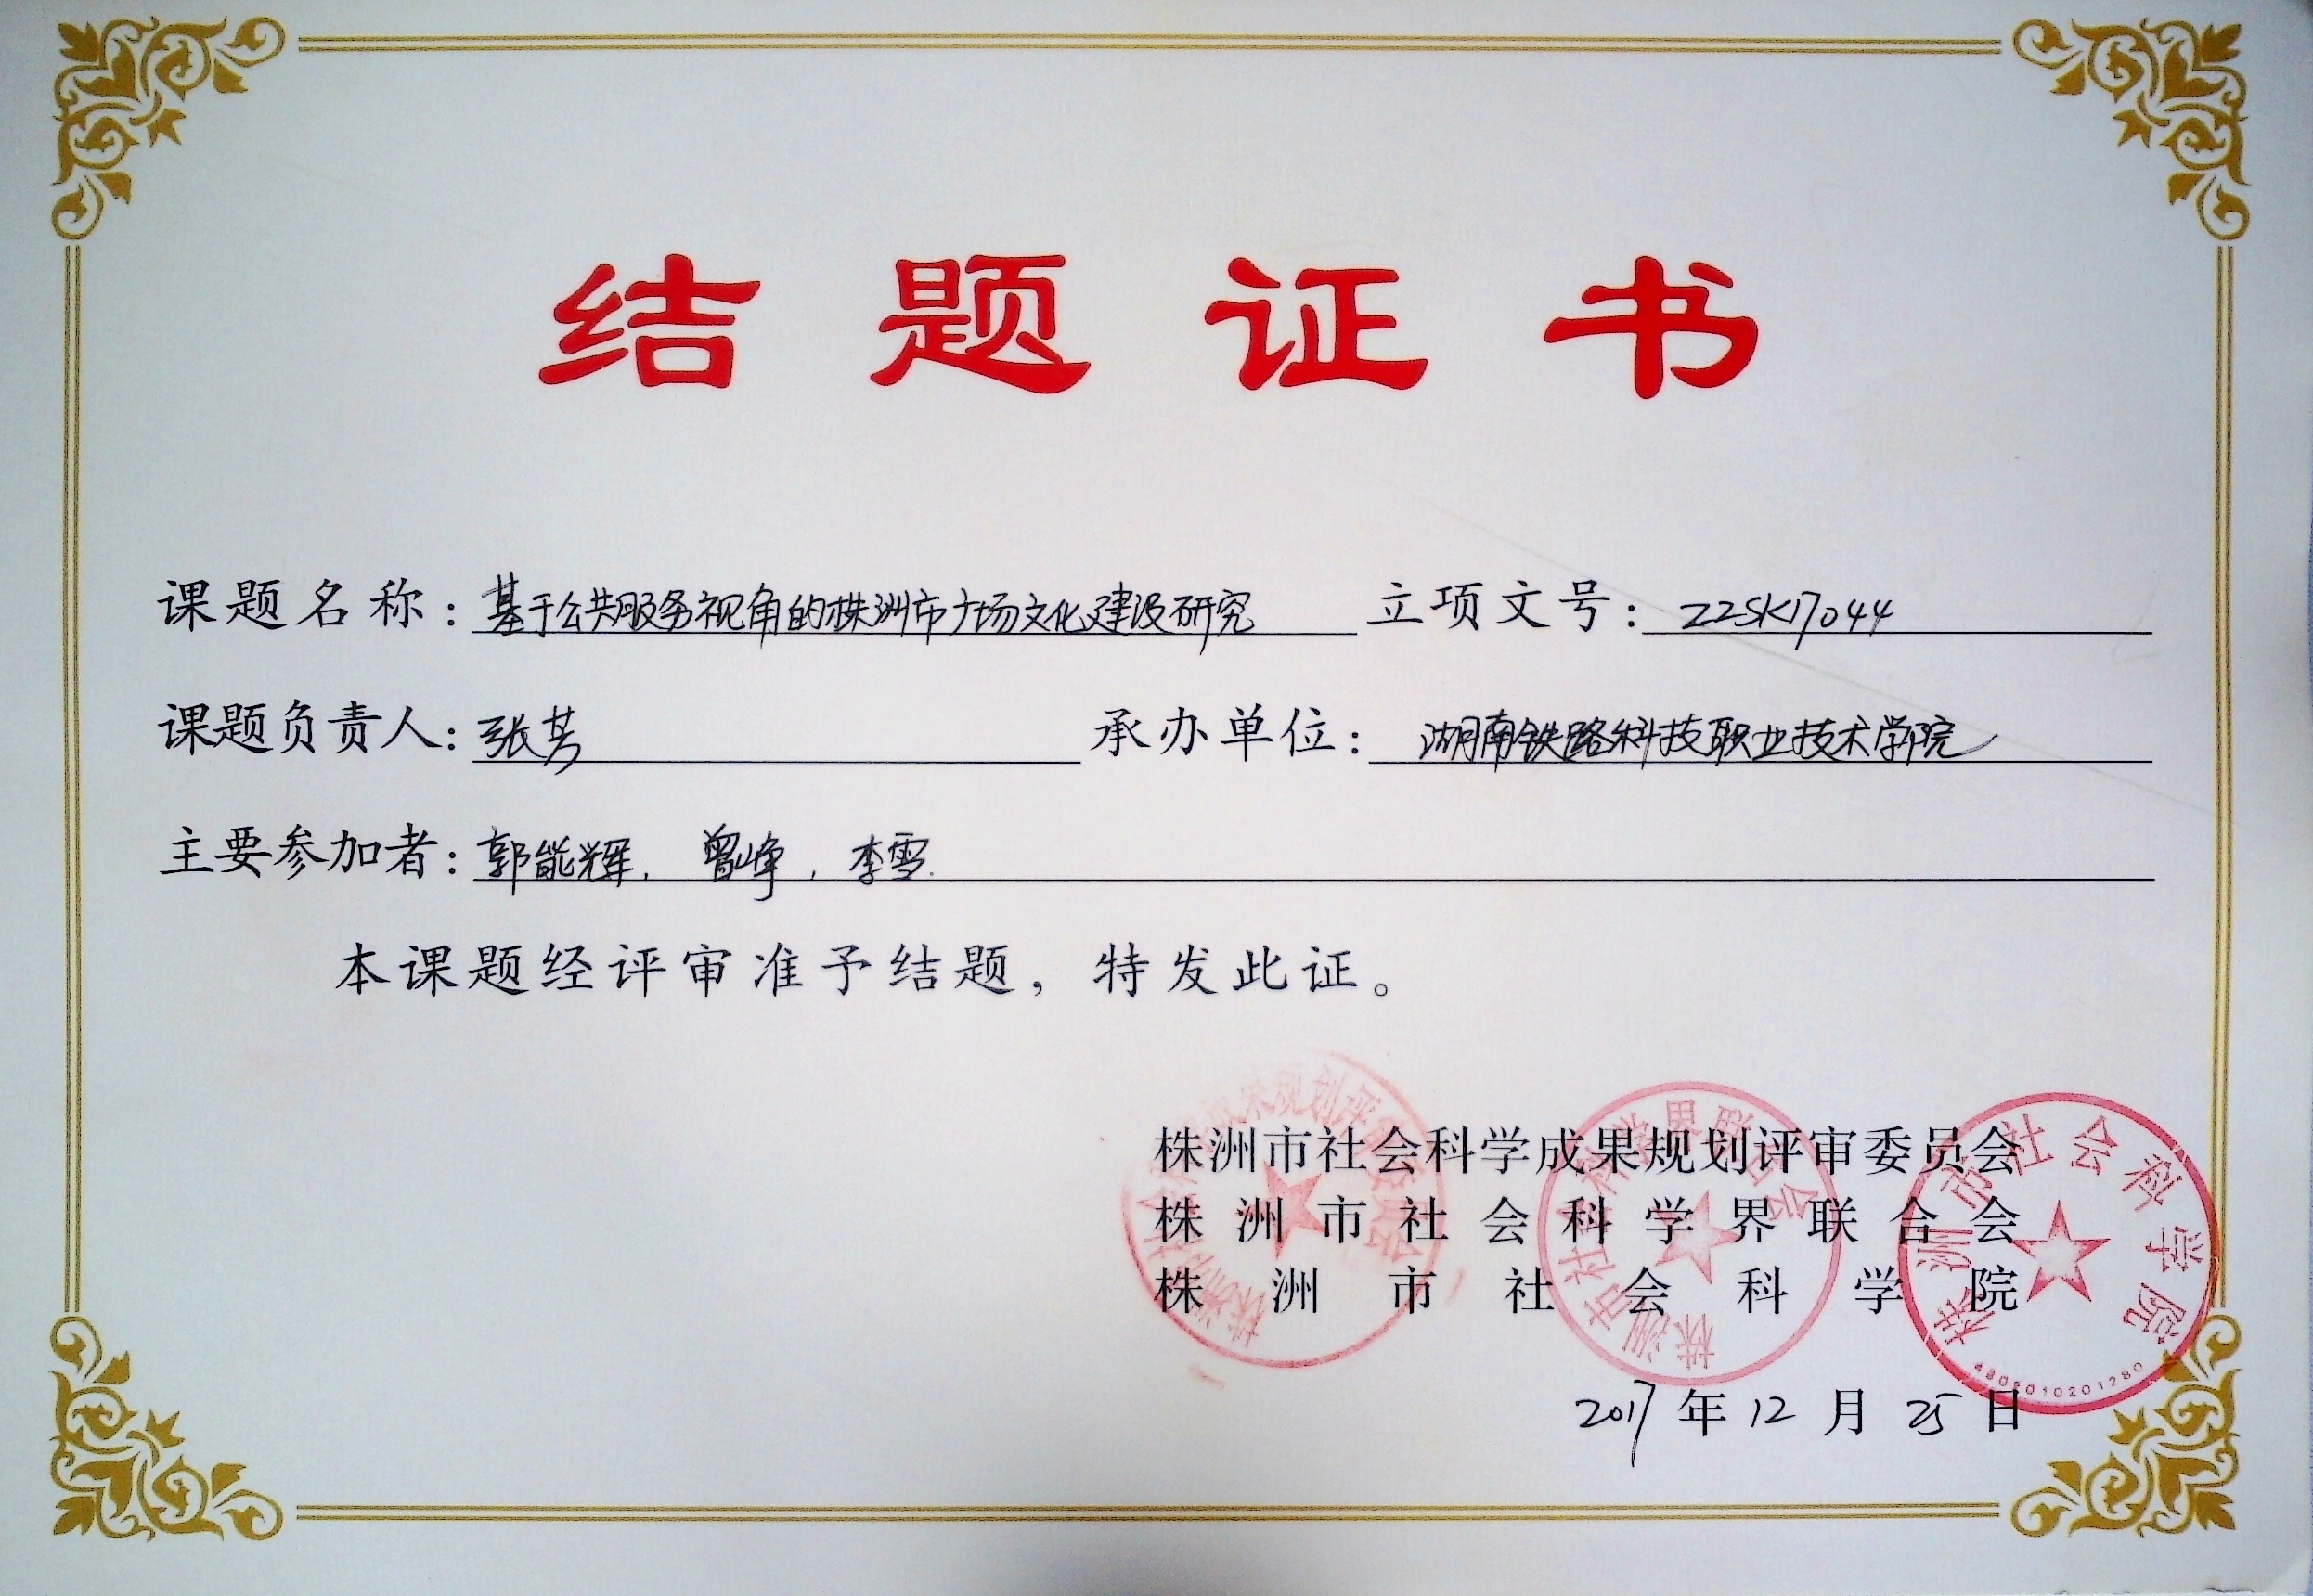 结题证书
课题名称：基于公共服务视角的株洲市广场文化建设研究 立项文号：ZZSK17044
课题负责人：张芳 承办单位：湖南铁路科技职业技术学院
主要参加者：郭能辉，曾峥，李雪.
本课题经评审准予结题，特发此证。
株洲市社会科学成果规划评审委员会
株洲市社会科学界联合会
株洲市社会科学院
2017年12月25日
株洲市社会科学界联合会
株洲市社会科学院